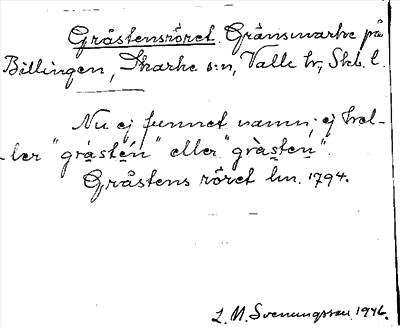 Gråstensröret. Gränsmärke på
Billingen, Skarke s:n, Valle hr, Skb. l.
Nu ej funnet namn; ej hel-
ler "grạstẹ́n" eller "gràsten".
Gråstens röret lm. 1794.
L. M. Svenungsson 1946.